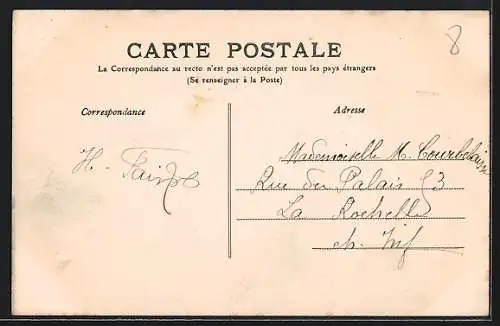 8
CARTE POSTALE
La Correspondance au recto n'est pas acceptée par tous les pays étrangers
(Se renseigner à la Poste)
Correspondance
Adresse
H.
Mademoiselle M. Courbelaisse
Rue du Palais 53
La Rochelle
ch. Inf